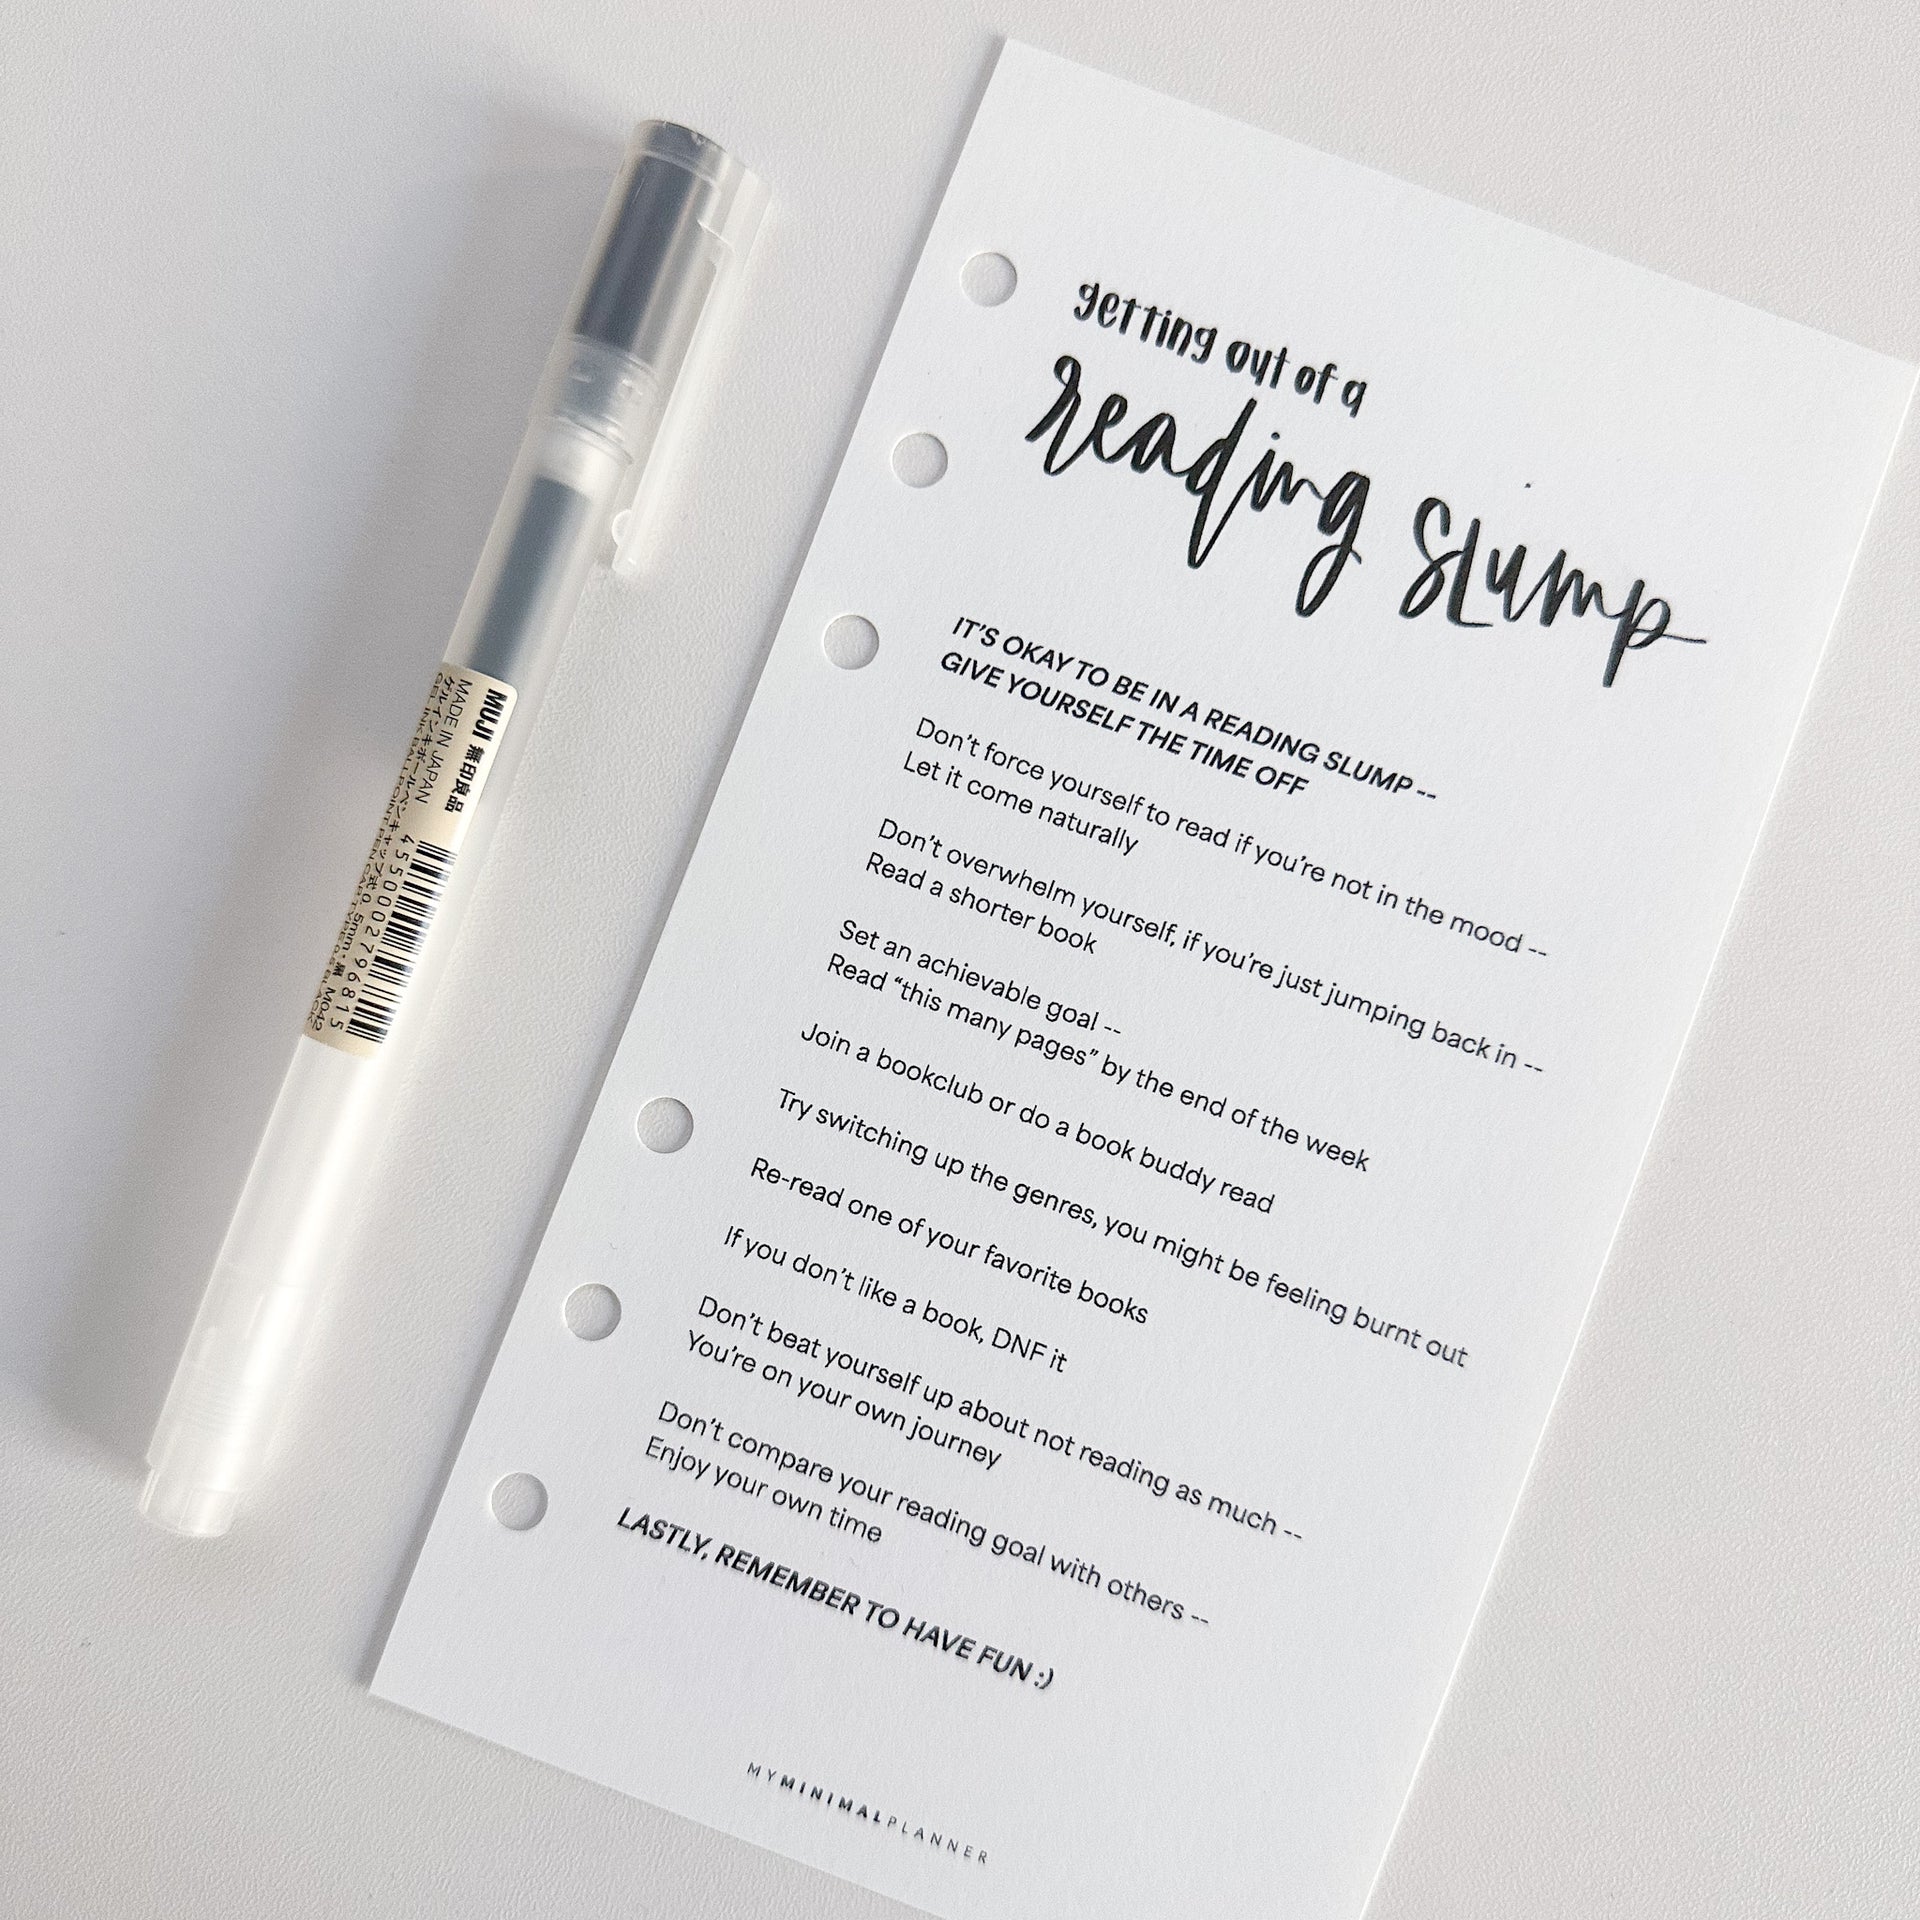 getting out of a
reading slump
IT'S OKAY TO BE IN A READING SLUMP --
GIVE YOURSELF THE TIME OFF
Don't force yourself to read if you're not in the mood --
Let it come naturally
Don't overwhelm yourself, if you're just jumping back in --
Read a shorter book
Set an achievable goal --
Read “this many pages” by the end of the week
Join a bookclub or do a book buddy read
Try switching up the genres, you might be feeling burnt out
Re-read one of your favorite books
If you don't like a book, DNF it
Don't beat yourself up about not reading as much --
You're on your own journey
Don't compare your reading goal with others --
Enjoy your own time
LASTLY, REMEMBER TO HAVE FUN :)
MYMINIMALPLANNER
MUJI 無印良品
MADE IN JAPAN
4550002796815
ゲルインキボールペンキャップ式0.5mm・黒 M042
GEL INK BALLPOINT PEN CAP TYPE